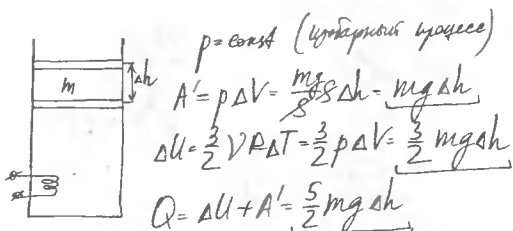 p = const (изобарный процесс)
Δh
m
A' = pΔV = mg/S SΔh = mgΔh
ΔU = 3/2 νRΔT = 3/2 pΔV = 3/2 mgΔh
Q = ΔU + A' = 5/2 mgΔh